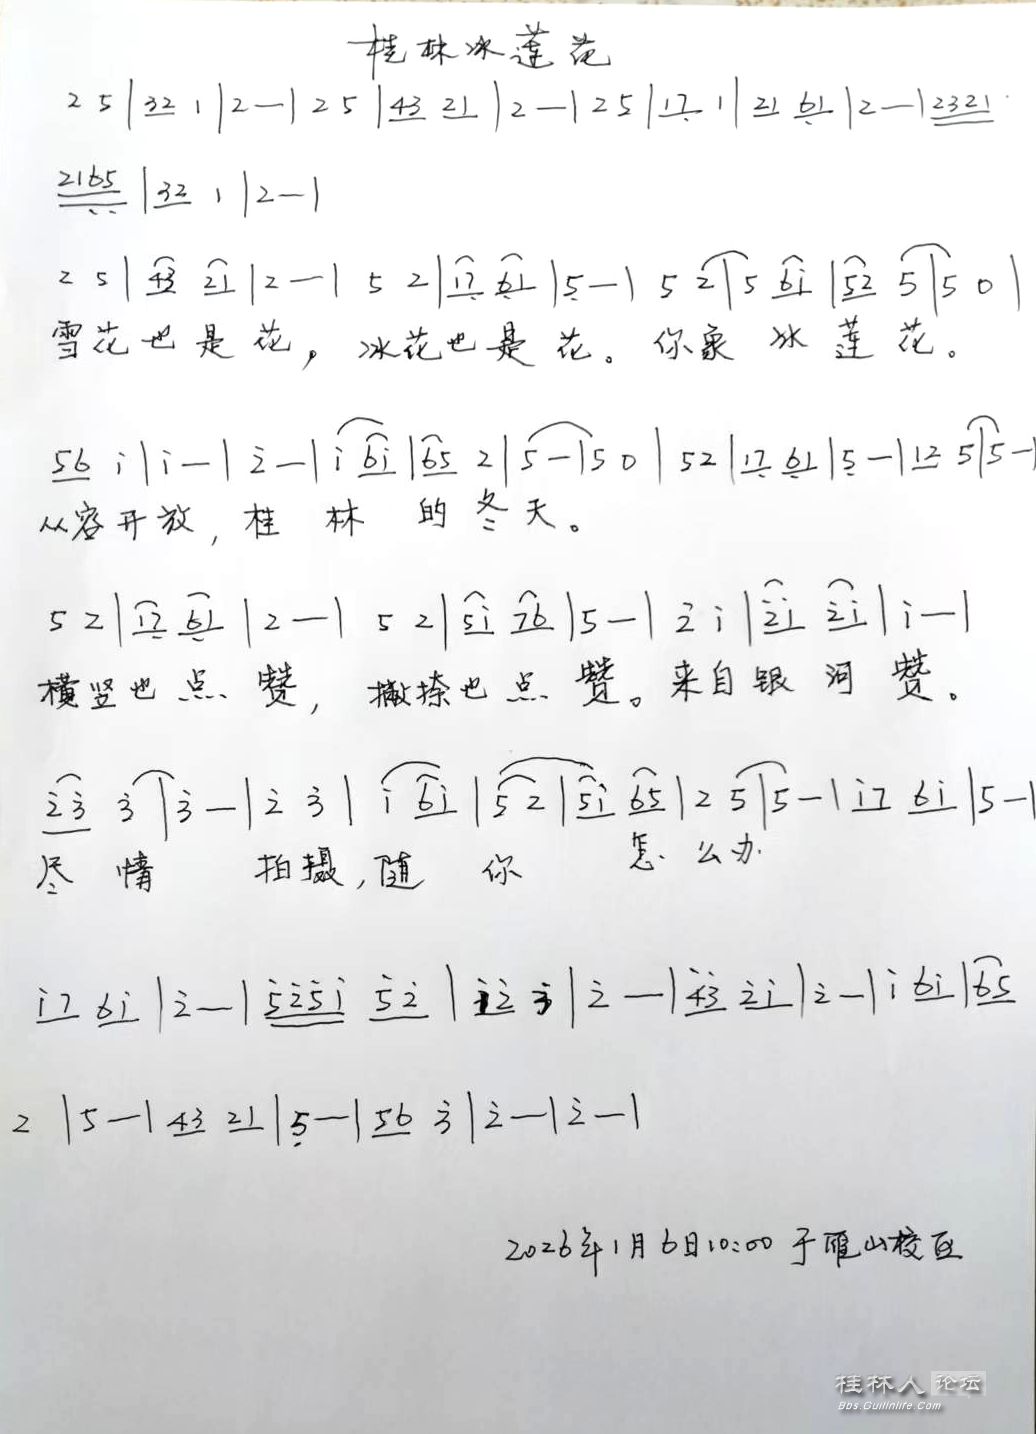 桂林冰莲花
2 5 | 32 1 | 2 — | 2 5 | 43 21 | 2 — | 2 5 | 17 1 | 21 61 | 2 — | 2321
2165 | 32 1 | 2 — |
2 5 | 43 21 | 2 — | 5 2 | 17 61 | 5 — | 5 2 | 5 6i | 52 5 | 5 0 |
雪花也是花，冰花也是花。你象冰莲花。
56 i | i — | 2̇ — | i 6i | 65 2 | 5 — | 5 0 | 52 | 17 61 | 5 — | 12 5 | 5 — |
从容开放，桂林的冬天。
5 2 | 17 61 | 2 — | 5 2 | 5i 76 | 5 — | 2̇ i | 2̇i 2̇i | i — |
横竖也点赞，撇捺也点赞。来自银河赞。
2̇3̇ 3̇ | 3̇ — | 2̇ 3̇ | i 6i | 5 2 | 5i 65 | 2 5 | 5 — | i7 6i | 5 — |
尽情拍摄，随你怎么办.
i7 6i | 2̇ — | 5̇2̇5̇i 5̇2̇ | i2̇ 3̇ | 2̇ — | 4̇3̇ 2̇i | 2̇ — | i 6i | 65
2 | 5 — | 43 21 | 5 — | 56 3̇ | 2̇ — | 2̇ — |
2026年1月6日10:00于雁山校区
桂林人论坛
Bbs.Guilinlife.Com